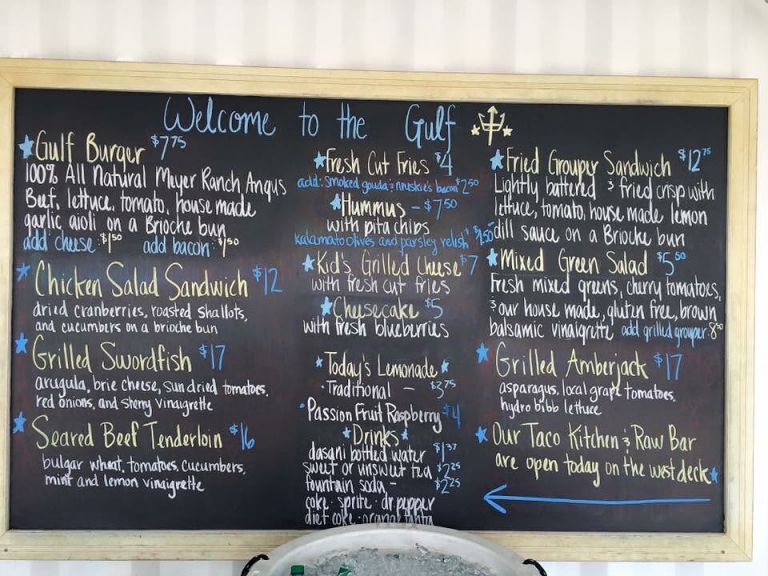 Welcome to the Gulf
Gulf Burger $7.75
100% All Natural Meyer Ranch Angus
Beef, lettuce, tomato, house made
garlic aioli on a Brioche bun
add cheese $1.50 add bacon $1.50
Chicken Salad Sandwich $12
dried cranberries, roasted shallots,
and cucumbers on a brioche bun
Grilled Swordfish $17
arugula, brie cheese, sundried tomatoes,
red onions, and sherry vinaigrette
Seared Beef Tenderloin $16
bulgar wheat, tomatoes, cucumbers,
mint and lemon vinaigrette
Fresh Cut Fries $4
add: smoked gouda & nueskie's bacon $2.50
Hummus - $7.50
with pita chips
kalamata olives and parsley relish $1.50
Kid's Grilled Cheese $7
with fresh cut fries
Cheesecake $5
with fresh blueberries
Today's Lemonade
Traditional - $3.75
Passion Fruit Raspberry $4
Drinks
dasani bottled water $1.37
sweet or unsweet tea $2.25
fountain soda - $2.25
coke · sprite · dr. pepper
diet coke · orange fanta
Fried Grouper Sandwich $12.75
Lightly battered & fried crisp with
lettuce, tomato, house made lemon
dill sauce on a Brioche bun
Mixed Green Salad $5.50
Fresh mixed greens, cherry tomatoes,
& our house made, gluten free, brown
balsamic vinaigrette add grilled grouper 8.50
Grilled Amberjack $17
asparagus, local grape tomatoes,
hydro bibb lettuce
Our Taco Kitchen & Raw Bar
are open today on the west deck